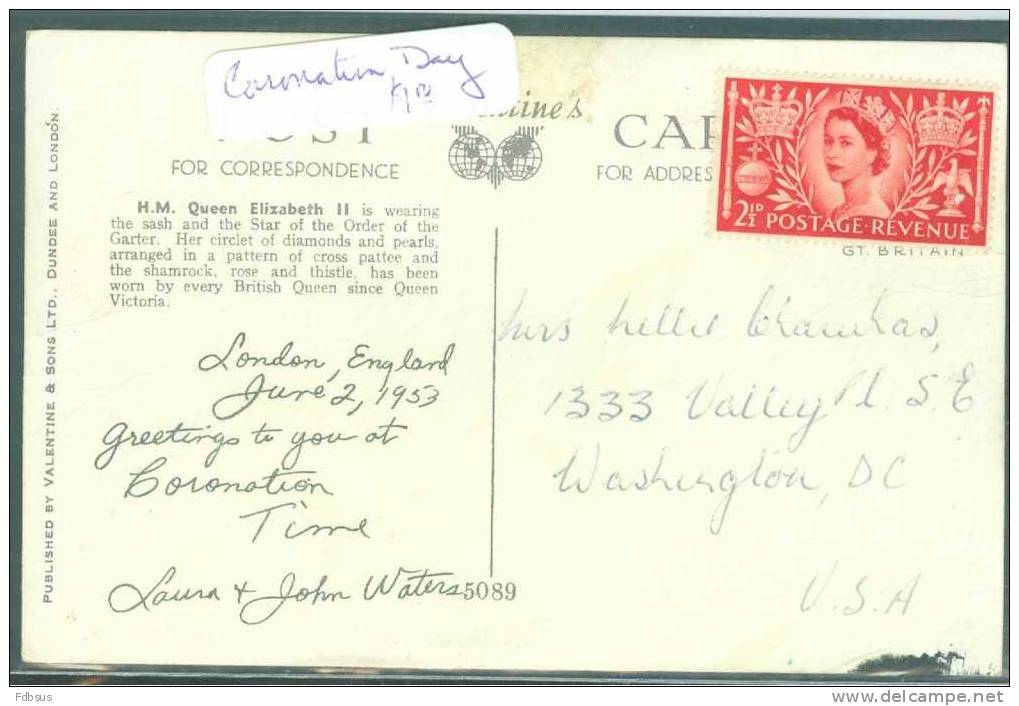 Coronation Day
POST
ntine's
FOR CORRESPONDENCE
FOR ADDRES
2½D POSTAGE·REVENUE
GT. BRITAIN
H.M. Queen Elizabeth II is wearing
the sash and the Star of the Order of the
Garter. Her circlet of diamonds and pearls,
arranged in a pattern of cross pattee and
the shamrock, rose and thistle, has been
worn by every British Queen since Queen
Victoria.
London, England
June 2, 1953
Greetings to you at
Coronation
Time
Laura + John Waters
5089
Mrs Nellie
1333 Valley Pl. S.E
Washington, DC
U.S.A
PUBLISHED BY VALENTINE & SONS LTD., DUNDEE AND LONDON.
Fdbsus
www.delcampe.net